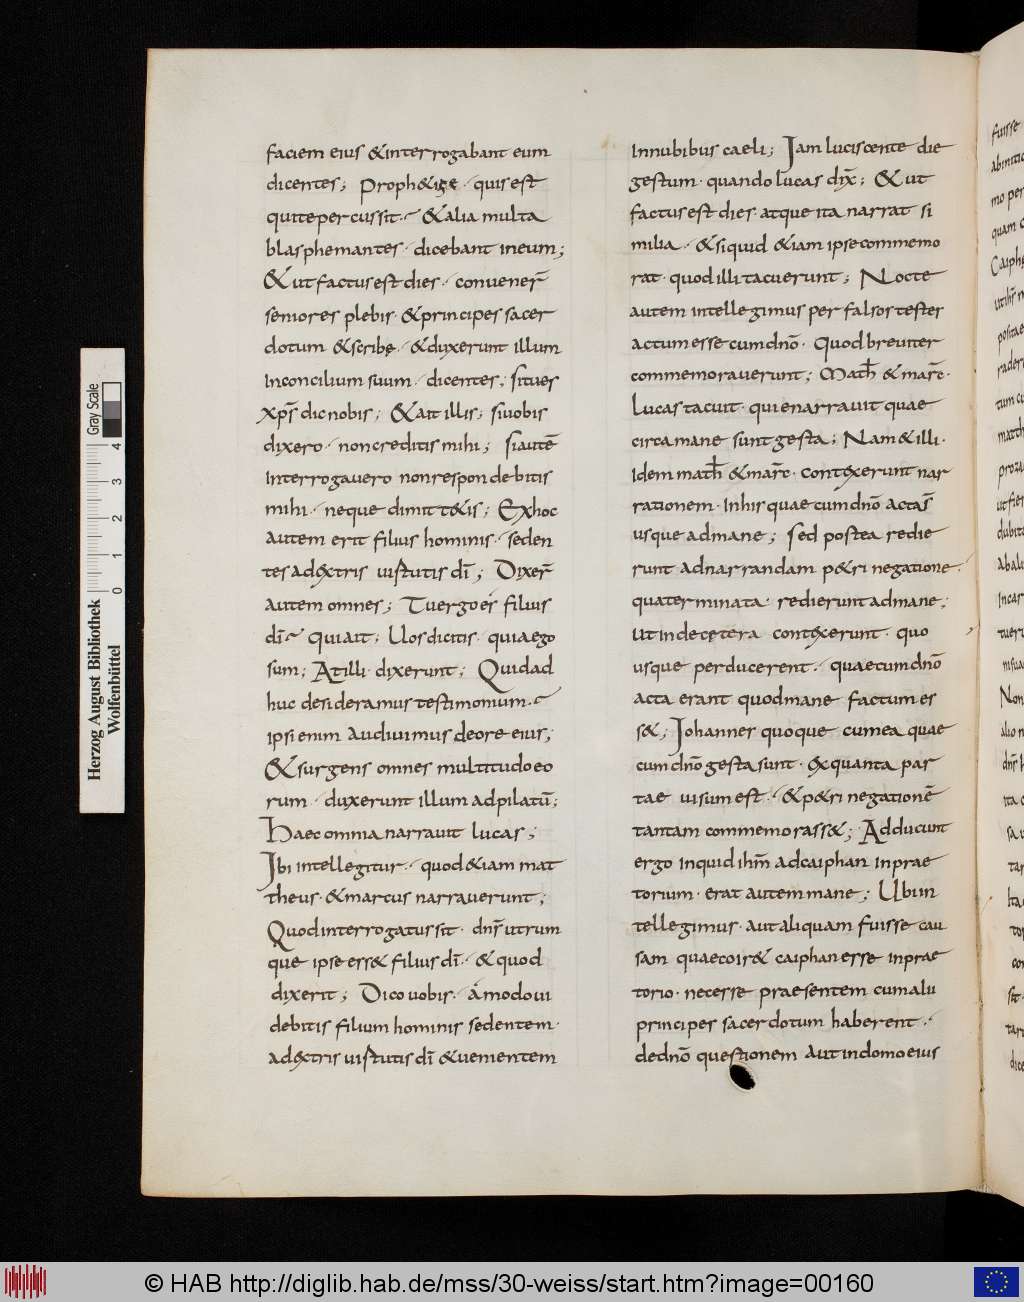 faciem eius &interrogabant eum
dicentes; proph&ize · quis est
qui te percussit · &alia multa
blasphemantes · dicebant in eum;
&ut factus est dies · convener̄
seniores plebis · &principes sacer
dotum &scribę · &duxerunt illum
in concilium suum · dicentes; si tu es
xp̄s dic nobis; &ait illis; si vobis
dixero · non creditis mihi; si autē
interrogavero non respondebitis
mihi · neque dimitt&is; Ex hoc
autem erit filius hominis · seden
tes ad dextris virtutis dī; Dixer̄
autem omnes; Tu ergo es filius
dī · Qui ait; Vos dicitis · quia ego
sum; At illi · dixerunt; Quid ad
huc desideramus testimonium ·
ipsi enim audivimus de ore eius;
&surgens omnes multitudo eo
rum · duxerunt illum ad pilatū;
Haec omnia narravit lucas;
Ibi intellegitur · quod &iam mat
theus · &marcus narraverunt;
Quod interrogatus sit · dn̄s utrum
que ipse ess& filius dī · &quod
dixerit; Dico vobis · Amodo vi
debitis filium hominis sedentem ·
ad dextris virtutis dī &venientem
in nubibus caeli; Iam luciscente die
gestum · quando lucas dix̄; &ut
factus est dies · atque ita narrat si
milia · &siquid &iam ipse commemo
rat · quod illi tacuerunt; Nocte
autem intellegimus per falsos testes
actum esse cum dn̄o · Quod breviter
commemoraverunt; Math̄ &marc̄ ·
Lucas tacuit · qui enarravit quae
circa mane sunt gesta; Nam &illi ·
idem math̄ &marc̄ · contexerunt nar
rationem · In his quae cum dn̄o acta s̄
usque ad mane; sed postea redie
runt ad narrandam p&ri negatione
qua terminata · redierunt ad mane;
ut inde cetera contexerunt · quo
usque perducerent · quae cum dn̄o
acta erant quod mane factum es
s&; Iohannes quoque cum ea quae
cum dn̄o gesta sunt · ex quanta par
tae visum est · &p&ri negationē
tantam commemorass&; Adducunt
ergo inquid ihm̄ ad caiphan in prae
torium · erat autem mane; Ubi in
tellegimus · aut aliquam fuisse cau
sam quae coir& caiphan esse in prae
torio · necesse praesentem cum alii
principes sacerdotum haberent ·
de dn̄o questionem aut in domo eius
fuisse
Gray Scale
0 1 2 3 4
Herzog August Bibliothek
Wolfenbüttel
© HAB http://diglib.hab.de/mss/30-weiss/start.htm?image=00160